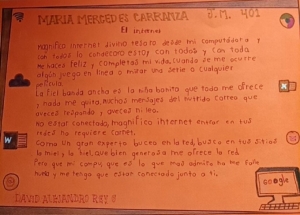 MARIA MERCEDES CARRANZA J.M. 401
El internet
magnifico internet, divino tesoro desde mi computadora y
con todos lo conosco estoy con todos y con toda
me haces feliz y completas mi vida, cuando se me ocurre
algún juego en línea o mirar una serie o cualquier
película
la fiel banda ancha es la niña bonita que todo me ofrece
y nada me quita, muchos mensajes del nutrido correo que
aveces respondo y aveces ni leo.
no estar conectado, magnifico internet entrar en tus
redes no requiere carnet.
Como un gran experto buceo en la red, busco en tus sitios
la miel y la hiel, que bien generosa me ofrece la red.
Pero que mi compu, que es lo que mas admiro ha me falle
nunca y me tenga que estar conectado junto a ti.
Google
W
X
DAVID ALEJANDRO REY